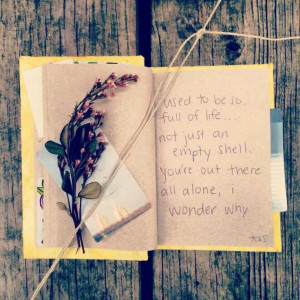 used to be so
full of life...
not just an
empty shell.
you're out there
all alone, i
wonder why